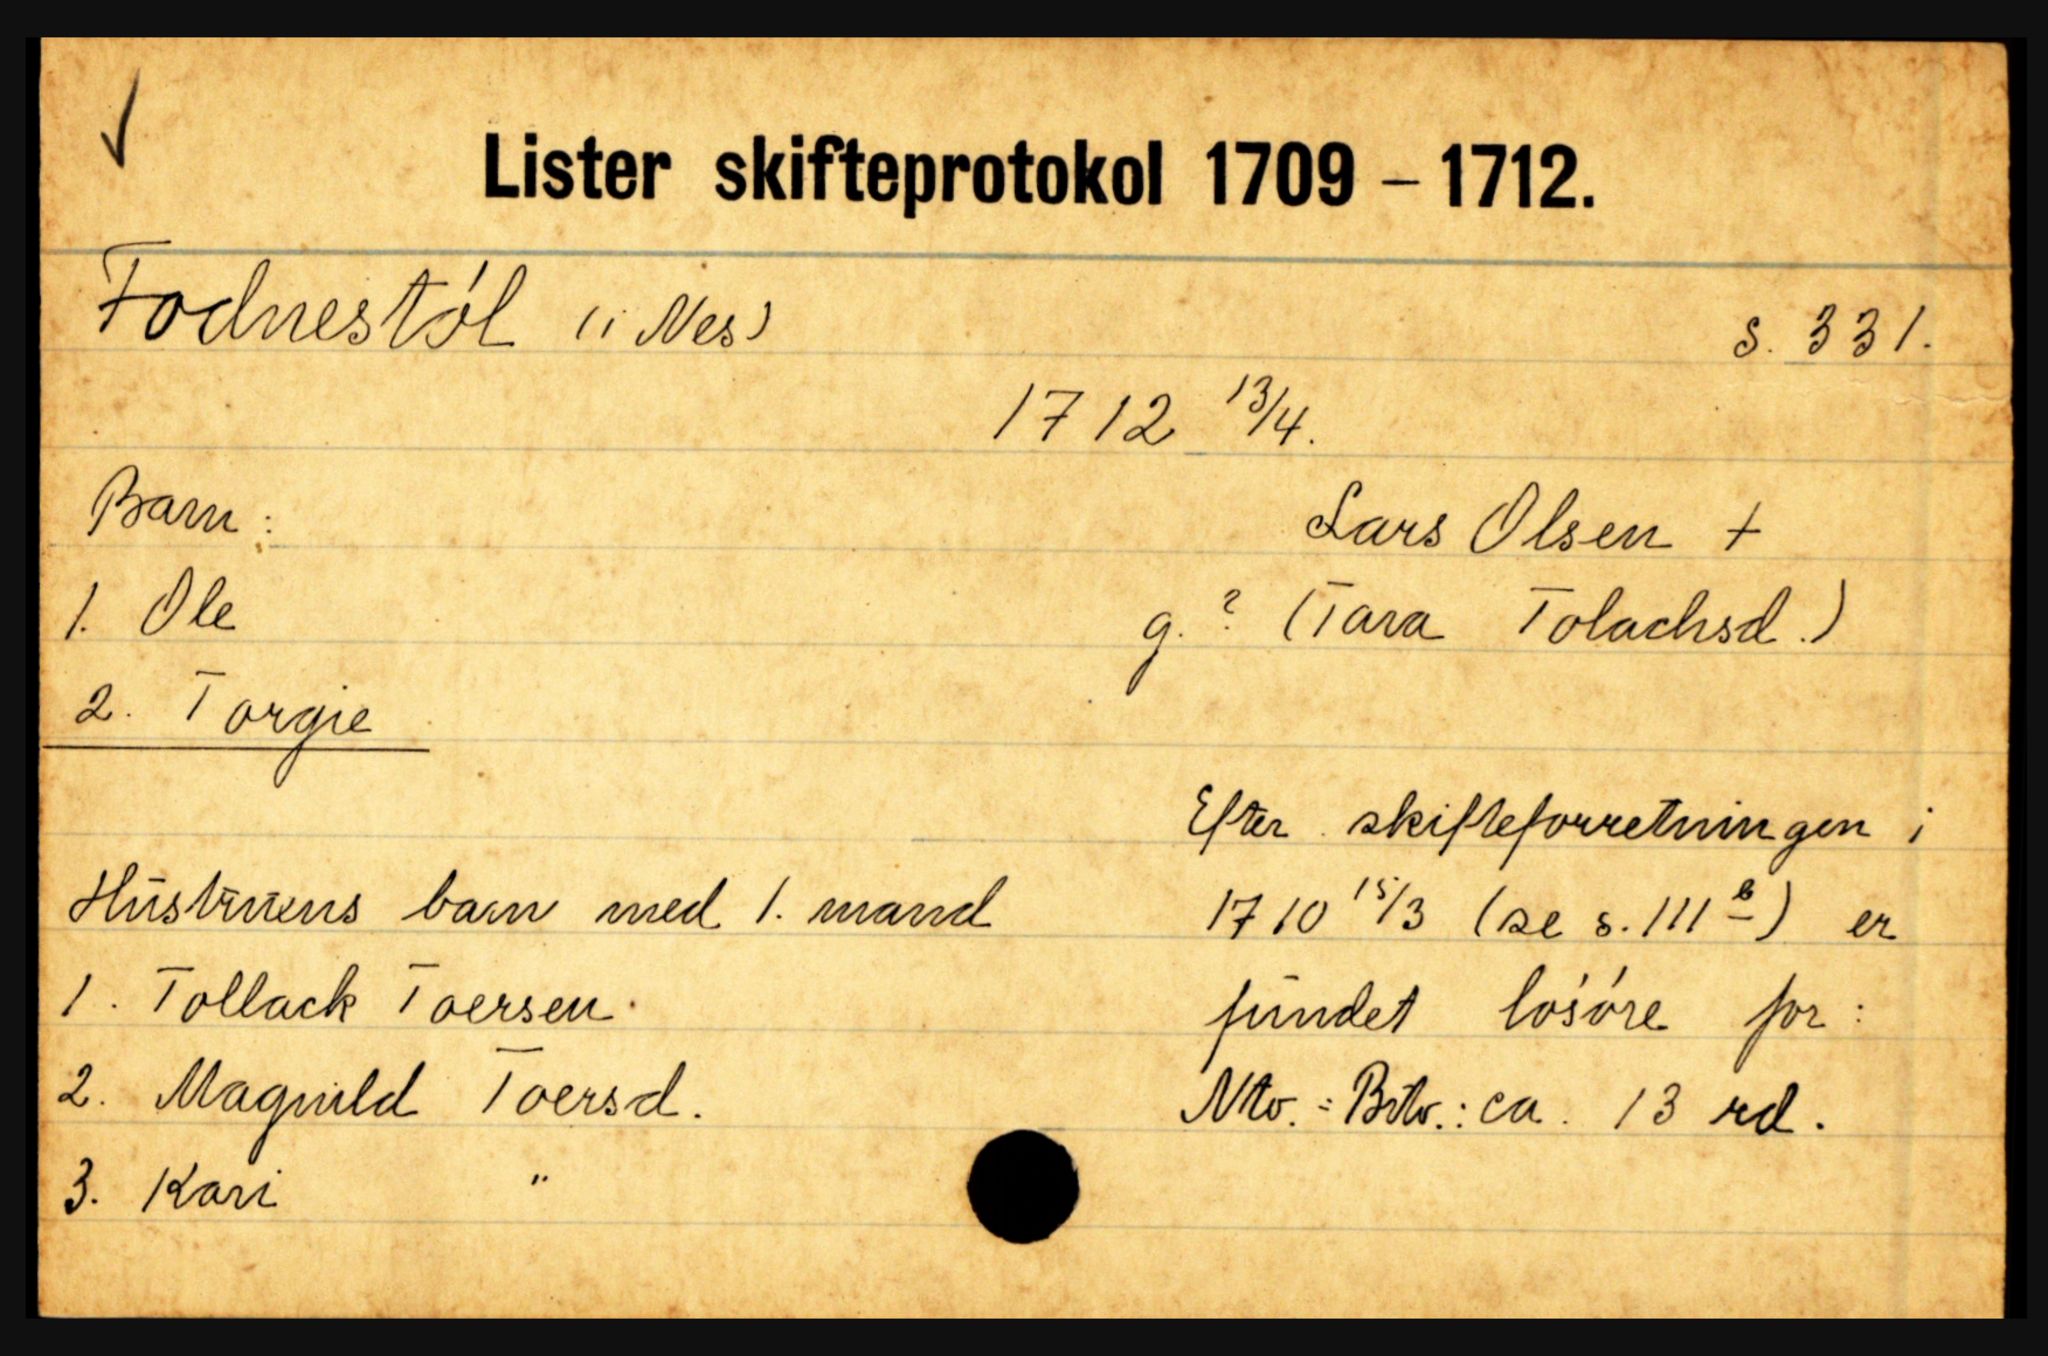 ✓
Lister skifteprotokol 1709 – 1712.
Fodnestøl (i Nes)
s. 331.
1712 13/4.
Barn:
1. Ole
2. Torgie
Lars Olsen +
g. ? (Tara Tolachsd.)
Hustruens barn med 1. mand
1. Tollack Toersen.
2. Magnild Toersd.
3. Kari "
Efter skifteforretningen i
1710 15/3 (se s. 111 b) er
fundet løsøre for:
Nto. = Bto.: ca. 13 rd.